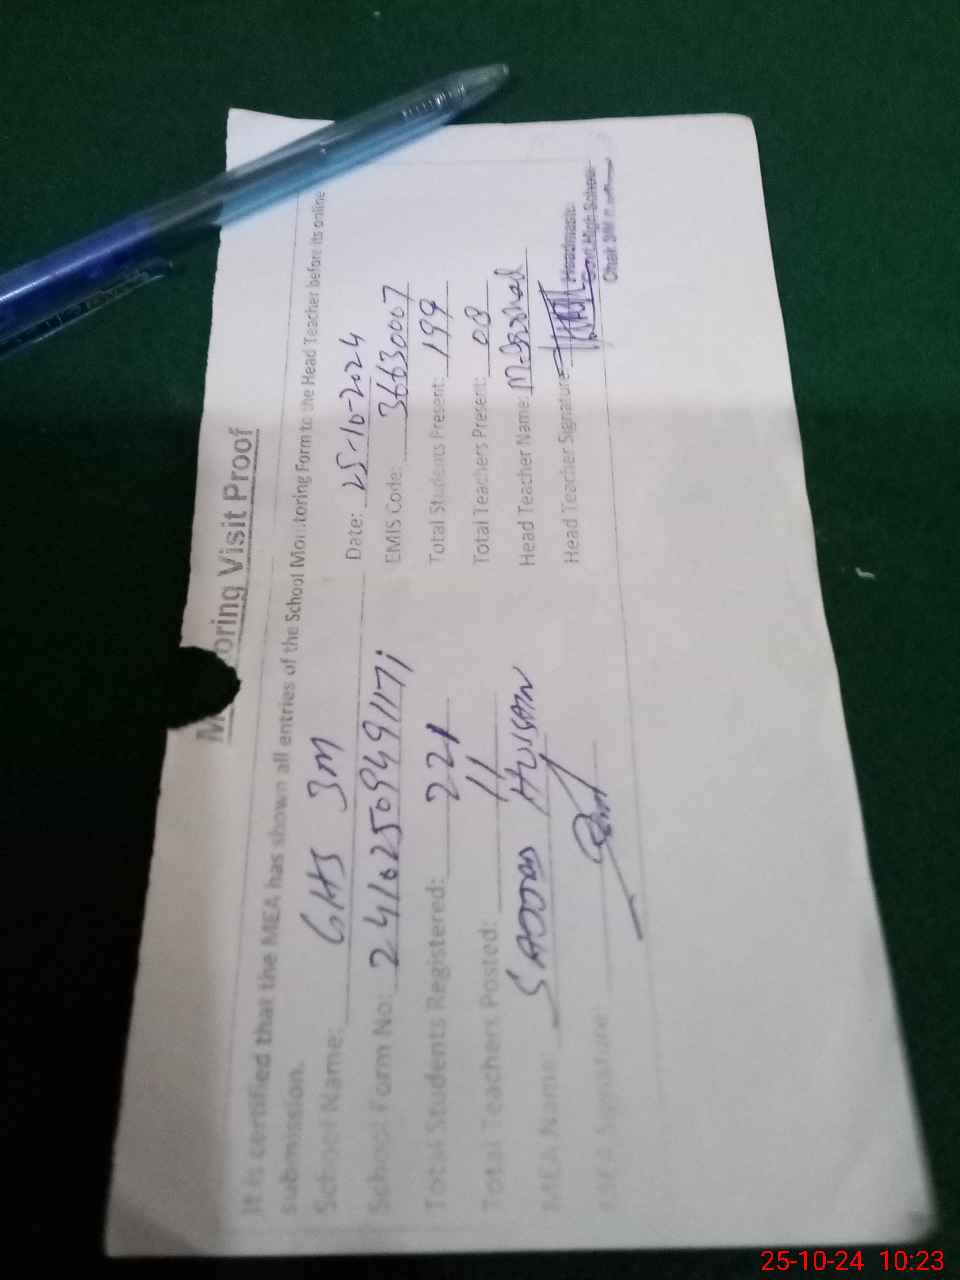 Monitoring Visit Proof
It is certified that the MEA has shown all entries of the School Monitoring Form to the Head Teacher before its online
submission.
School Name: GHS 3M Date: 25-10-2024
School Form No: 24102509491171 EMIS Code: 36630007
Total Students Registered: 221 Total Students Present: 199
Total Teachers Posted: 11 Total Teachers Present: 08
MEA Name: SADDAM HUSSAIN Head Teacher Name: M. Arshad
MEA Signature: Head Teacher Signature:
Headmaster
Govt High School
Chak 3/M
25-10-24 10:23